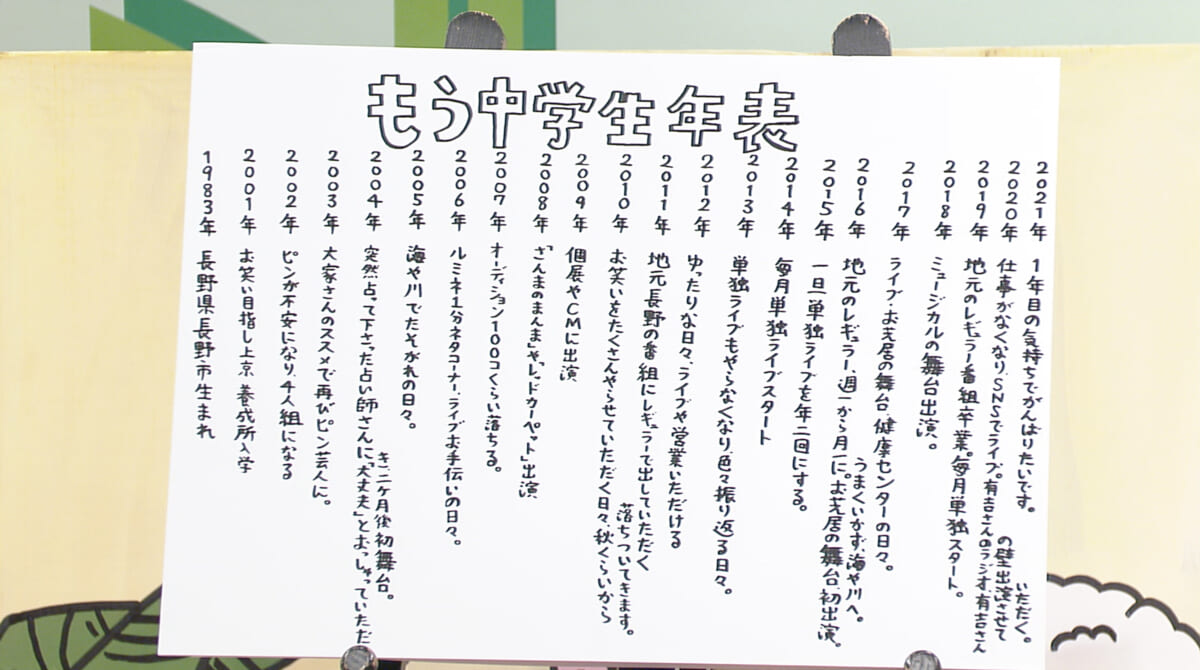 もう中学生年表
1983年 長野県長野市生まれ
2001年 お笑い目指し上京 養成所入学
2002年 ピンが不安になり、4人組になる
2003年 大家さんのススメで再びピン芸人に。
2004年 突然占って下さった占い師さんに「大丈夫」とおっしゃっていただ
き、二ヶ月後初舞台。
2005年 海や川でたそがれの日々。
2006年 ルミネ1分ネタコーナー、ライブお手伝いの日々。
2007年 オーディション100コくらい落ちる。
2008年 「さんまのまんま」や「レッドカーペット」出演
2009年 個展やCMに出演
2010年 お笑いをたくさんやらせていただく日々、秋くらいから
落ちついてきます。
2011年 地元長野の番組にレギュラーで出していただく
2012年 ゆったりな日々、ライブや営業いただける
2013年 単独ライブもやらなくなり、色々振り返る日々。
2014年 毎月単独ライブスタート
2015年 一旦単独ライブを年二回にする。
2016年 地元のレギュラー、週一から月一に。お芝居の舞台初出演、
うまくいかず、海や川へ。
2017年 ライブ・お芝居の舞台、健康センターの日々。
2018年 ミュージカルの舞台出演。
2019年 地元のレギュラー番組卒業。毎月単独スタート。
2020年 仕事がなくなり、SNSでライブ。有吉さんのラジオ、有吉さん
の壁出演させて
いただく。
2021年 1年目の気持ちでがんばりたいです。